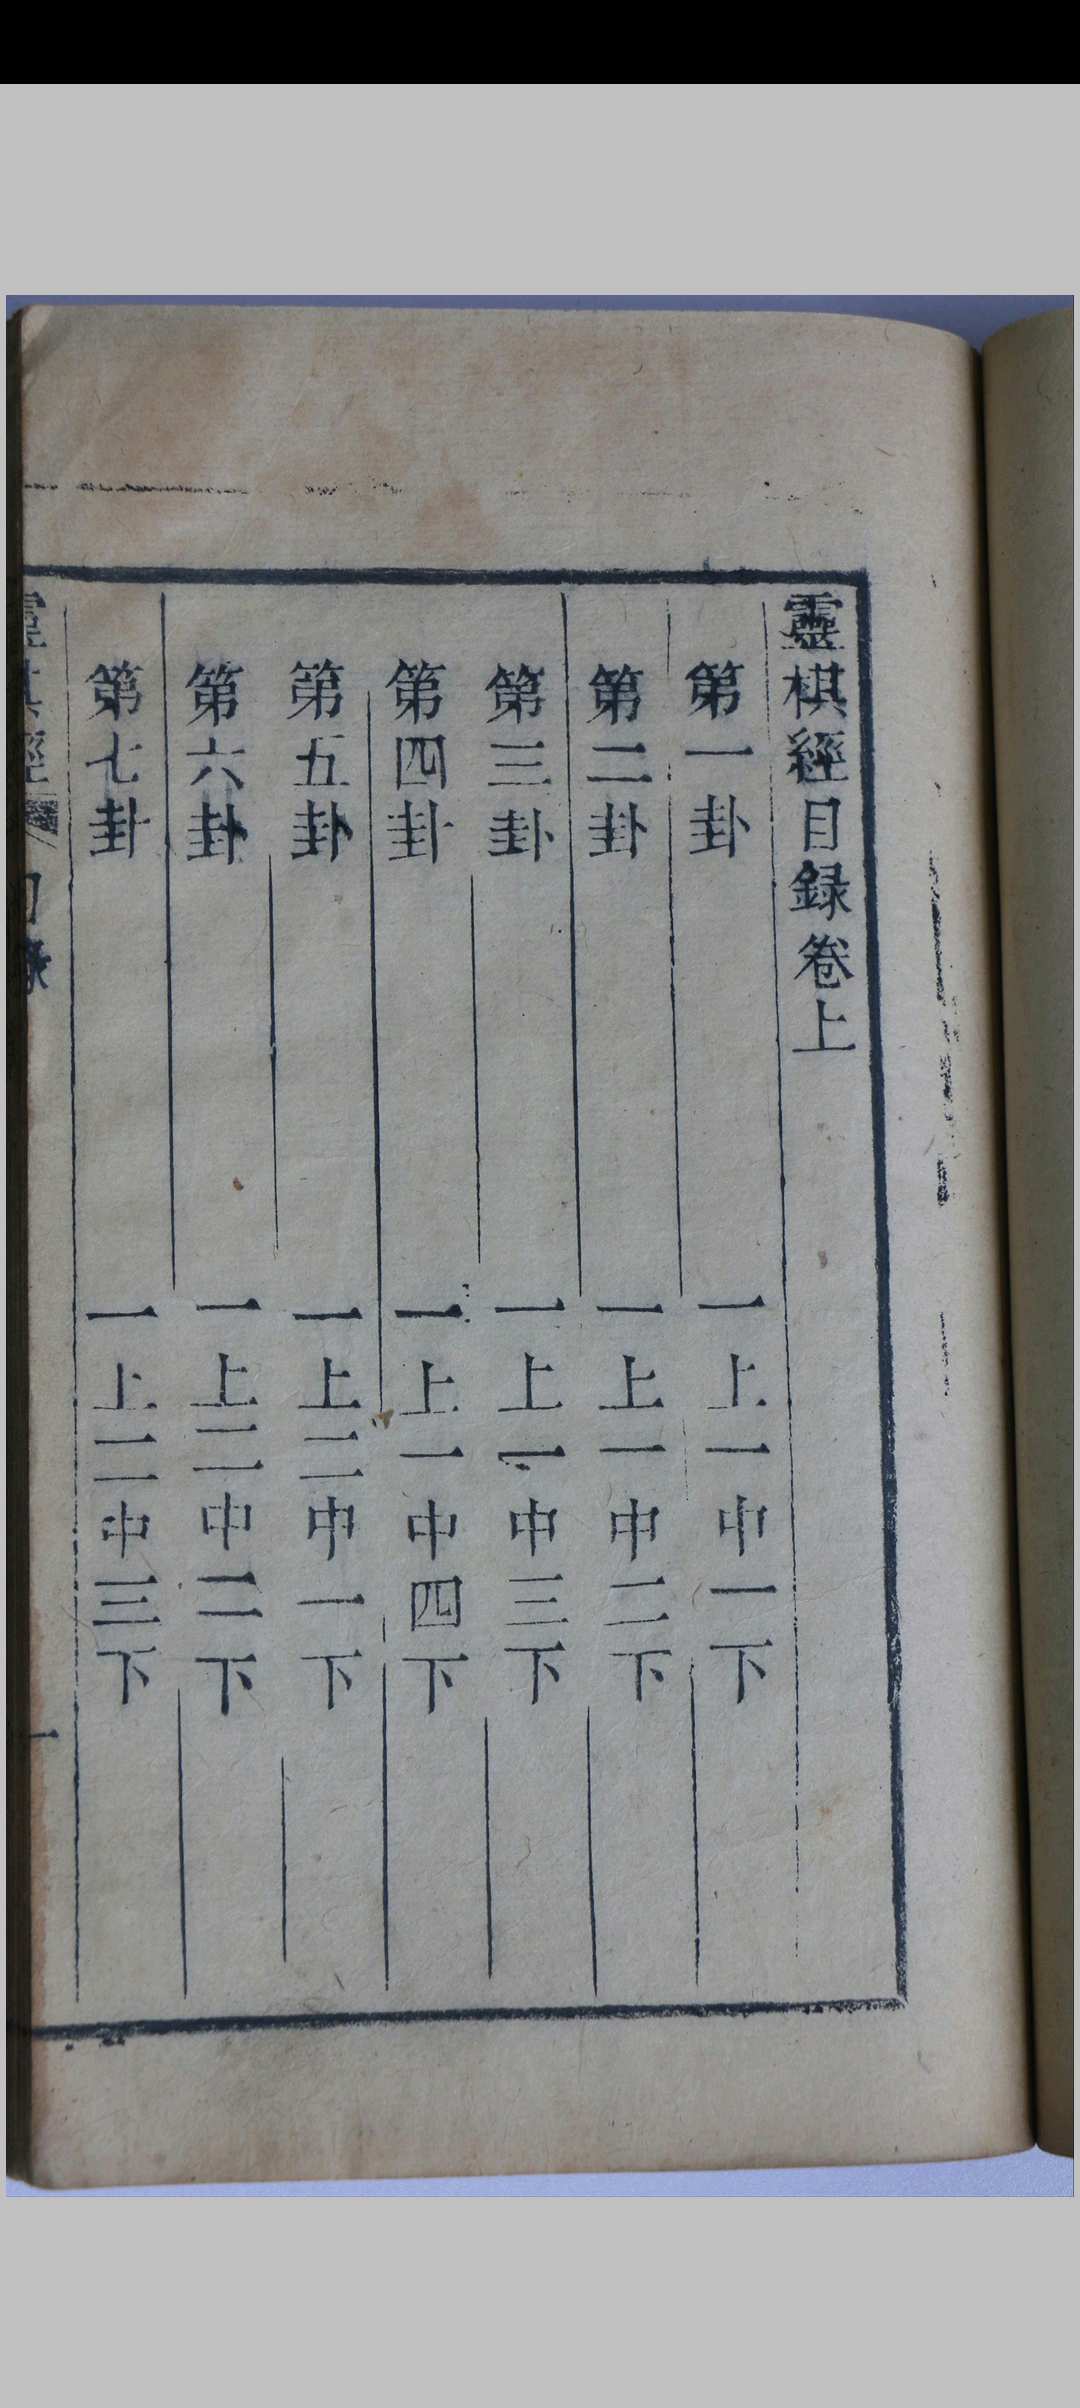 靈棋經目録卷上
第一卦 一上一中一下
第二卦 一上一中二下
第三卦 一上一中三下
第四卦 一上一中四下
第五卦 一上二中一下
第六卦 一上二中二下
第七卦 一上二中三下
靈棋經 目錄 一